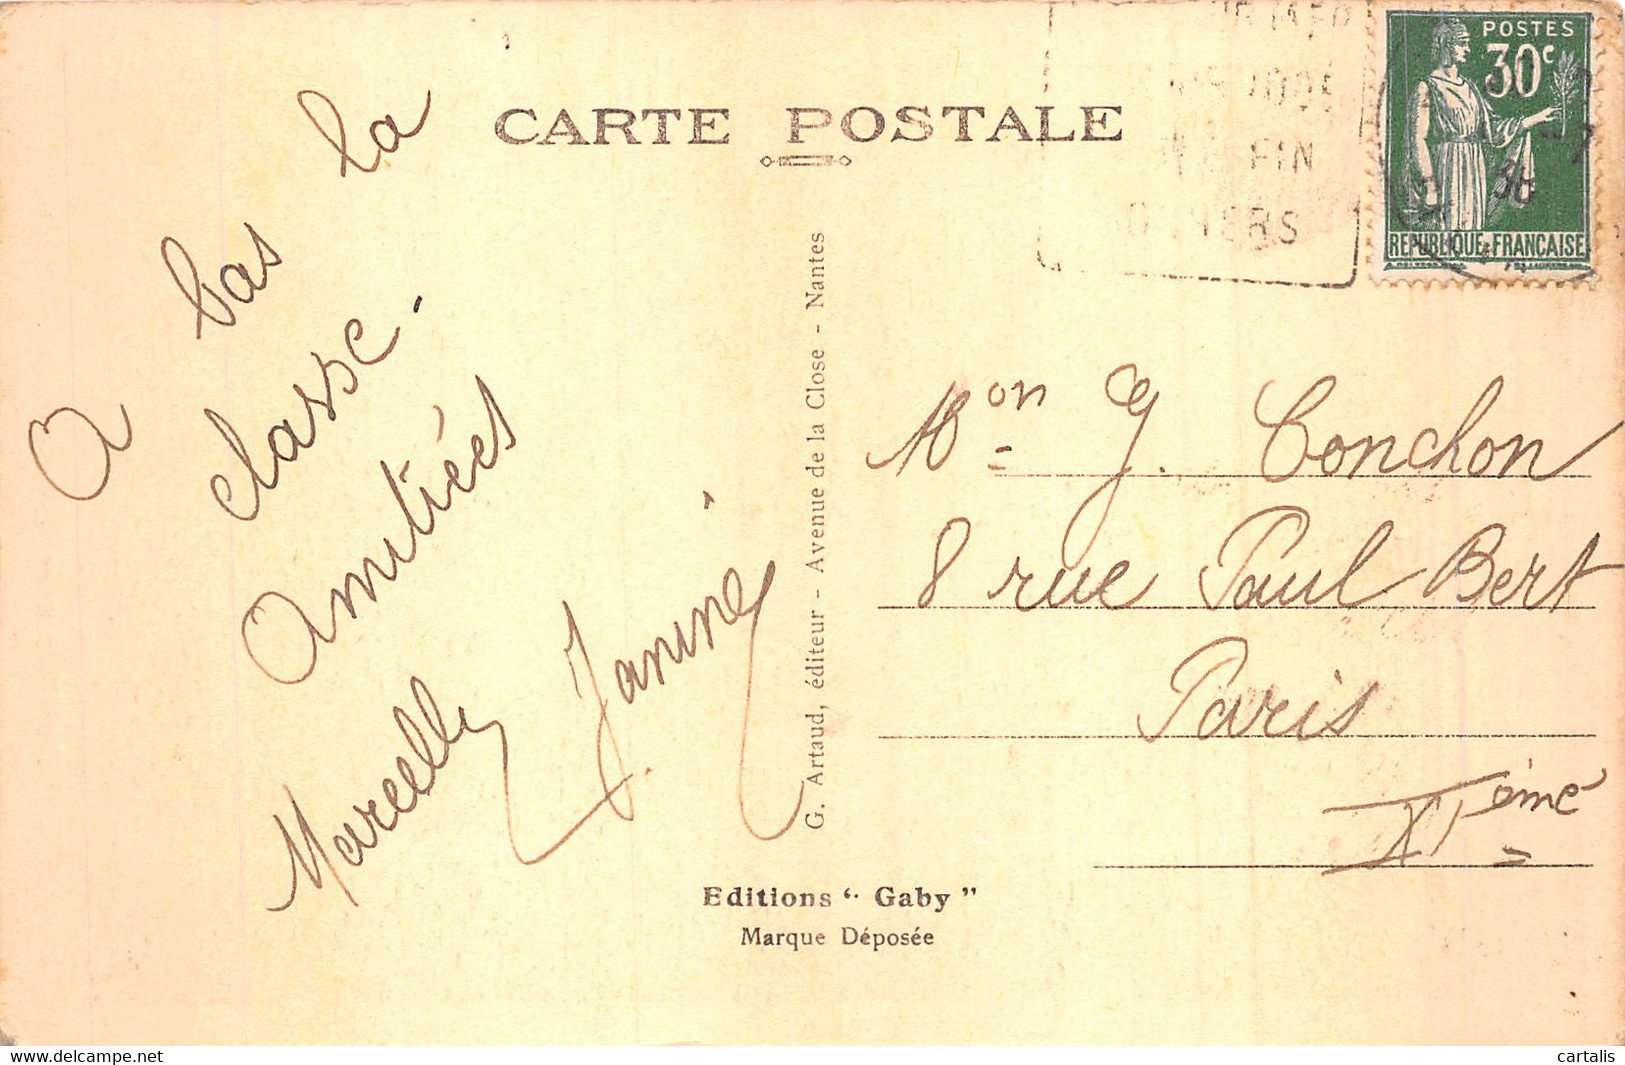 CARTE POSTALE
POSTES
30c
RÉPUBLIQUE FRANÇAISE
36
FIN
A bas la
classe.
Amitiés
Marcelle Janine
G. Artaud, éditeur - Avenue de la Close - Nantes
Mon G. Conchon
8 rue Paul Bert
Paris
XIème
Editions “Gaby”
Marque Déposée
delcampe.net
cartalis